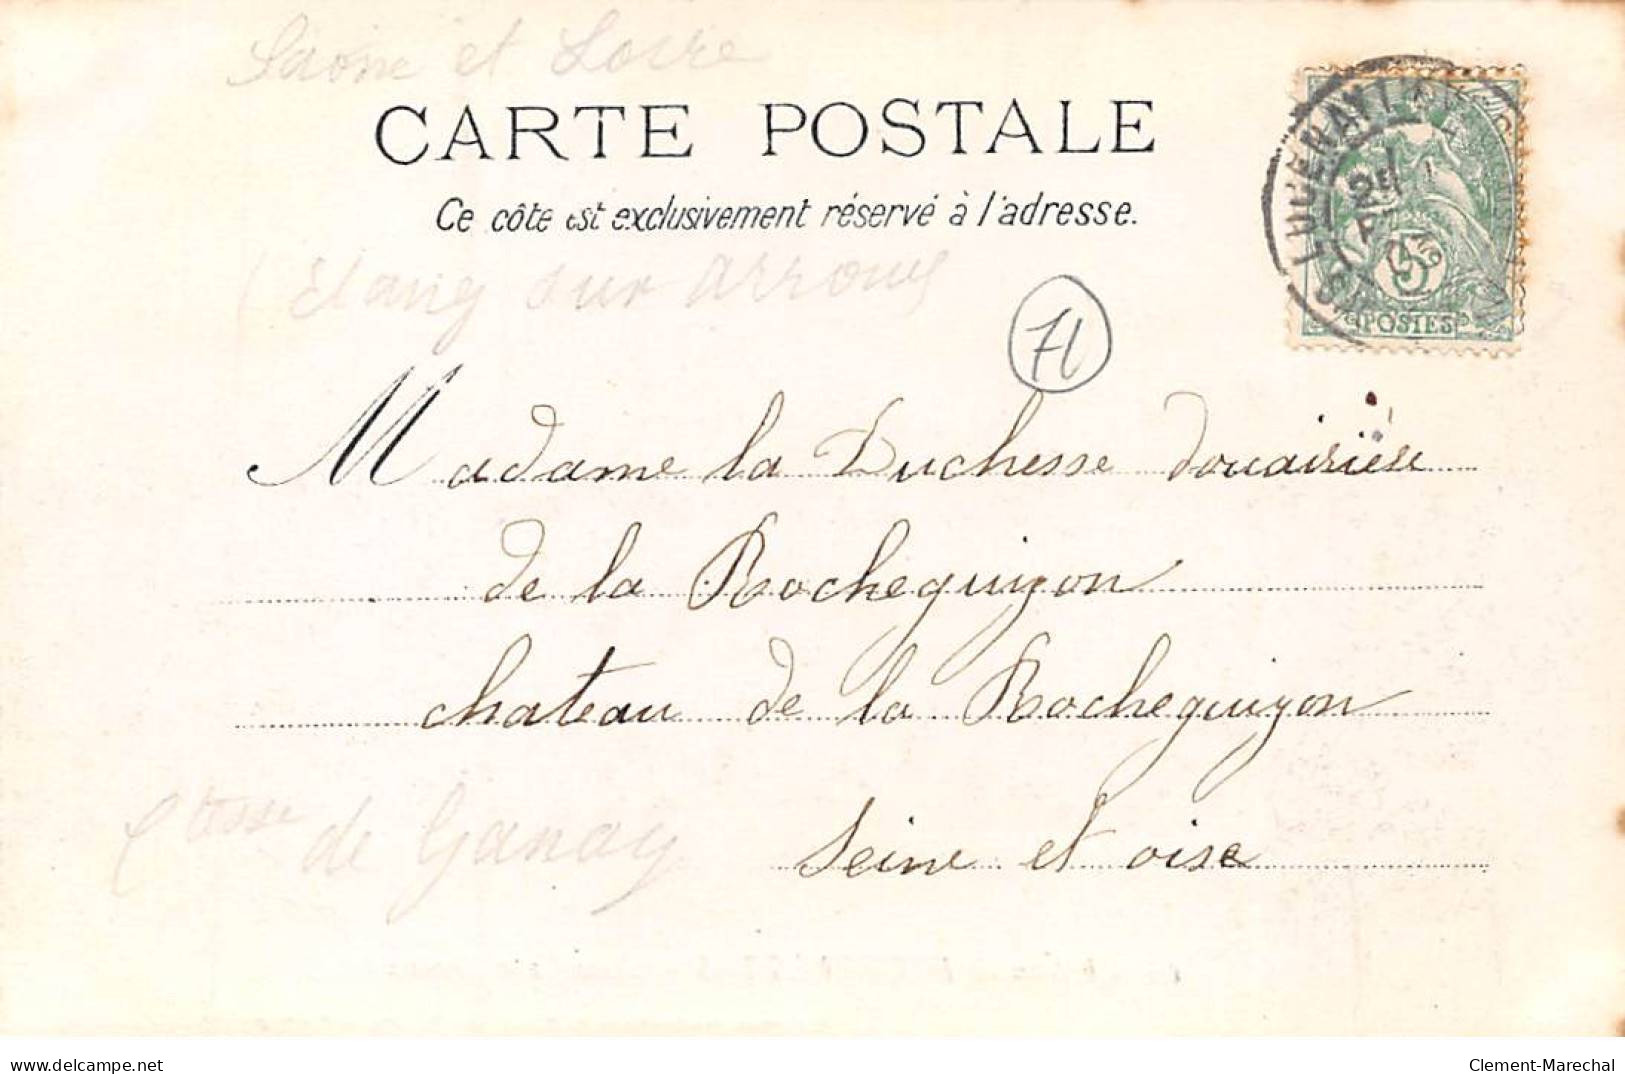 Saone et Loire
CARTE POSTALE
Ce côte est exclusivement réservé à l'adresse.
Etang sur Arroux
71
5
POSTES
LUCENAY L'EV
Madame la Duchesse douairière
de la Rocheguyon
chateau de la Rocheguyon
Seine et oise
Ctesse de Ganay
delcampe.net
Clement-Marechal